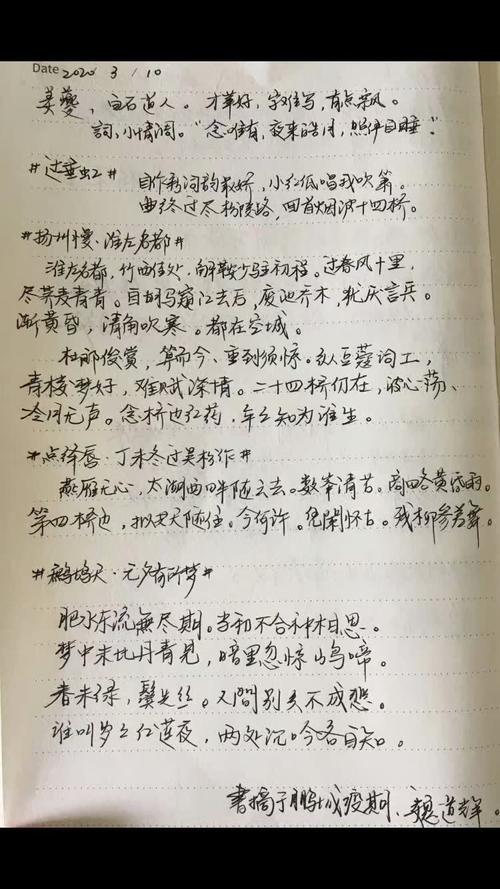 Date 2020 3/10
姜夔，白石道人。才華好，字佳写，有点飘。
詞，小情调。“念唯有，夜来皓月，照伊自睡。”
#过垂虹#
自作新词韵最娇，小红低唱我吹箫。
曲终过尽松陵路，回首烟波十四桥。
#扬州慢·淮左名都#
淮左名都，竹西佳处，解鞍少驻初程。过春风十里，
尽荠麦青青。自胡马窥江去后，废池乔木，犹厌言兵。
渐黄昏，清角吹寒。都在空城。
杜郎俊赏，算而今、重到须惊。纵豆蔻词工，
青楼梦好，难赋深情。二十四桥仍在，波心荡、
冷月无声。念桥边红药，年年知为谁生。
#点绛唇·丁未冬过吴松作#
燕雁无心，太湖西畔随云去。数峯清苦。商略黄昏雨。
第四桥边，拟共天随住。今何许。凭闌怀古。残柳参差舞。
#鹧鸪天·元夕有所梦#
肥水东流無尽期。当初不合种相思。
梦中未比丹青見，暗里忽惊山鸟啼。
春未绿，鬓先丝。人間别久不成悲。
谁叫岁岁红莲夜，两处沉吟各自知。
書摘于鹏城疫期、魏道辉。